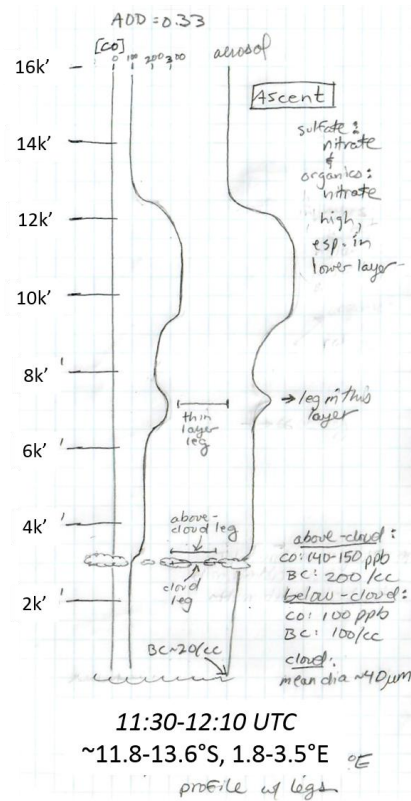 AOD = 0.33
[CO]
0 100 200 300
aerosol
16k'
Ascent
sulfate:
nitrate
&
organics:
nitrate
high,
esp. in
lower layer
14k'
12k'
10k'
8k'
thin
layer
leg
→ leg in this
layer
6k'
4k'
above-
cloud leg
cloud
leg
above-cloud:
CO: 140-150 ppb
BC: 200/cc
below-cloud:
CO: 100 ppb
BC: 100/cc
cloud:
mean dia ~40µm
2k'
BC~20/cc
11:30-12:10 UTC
~11.8-13.6°S, 1.8-3.5°E
°E
profile w/ legs